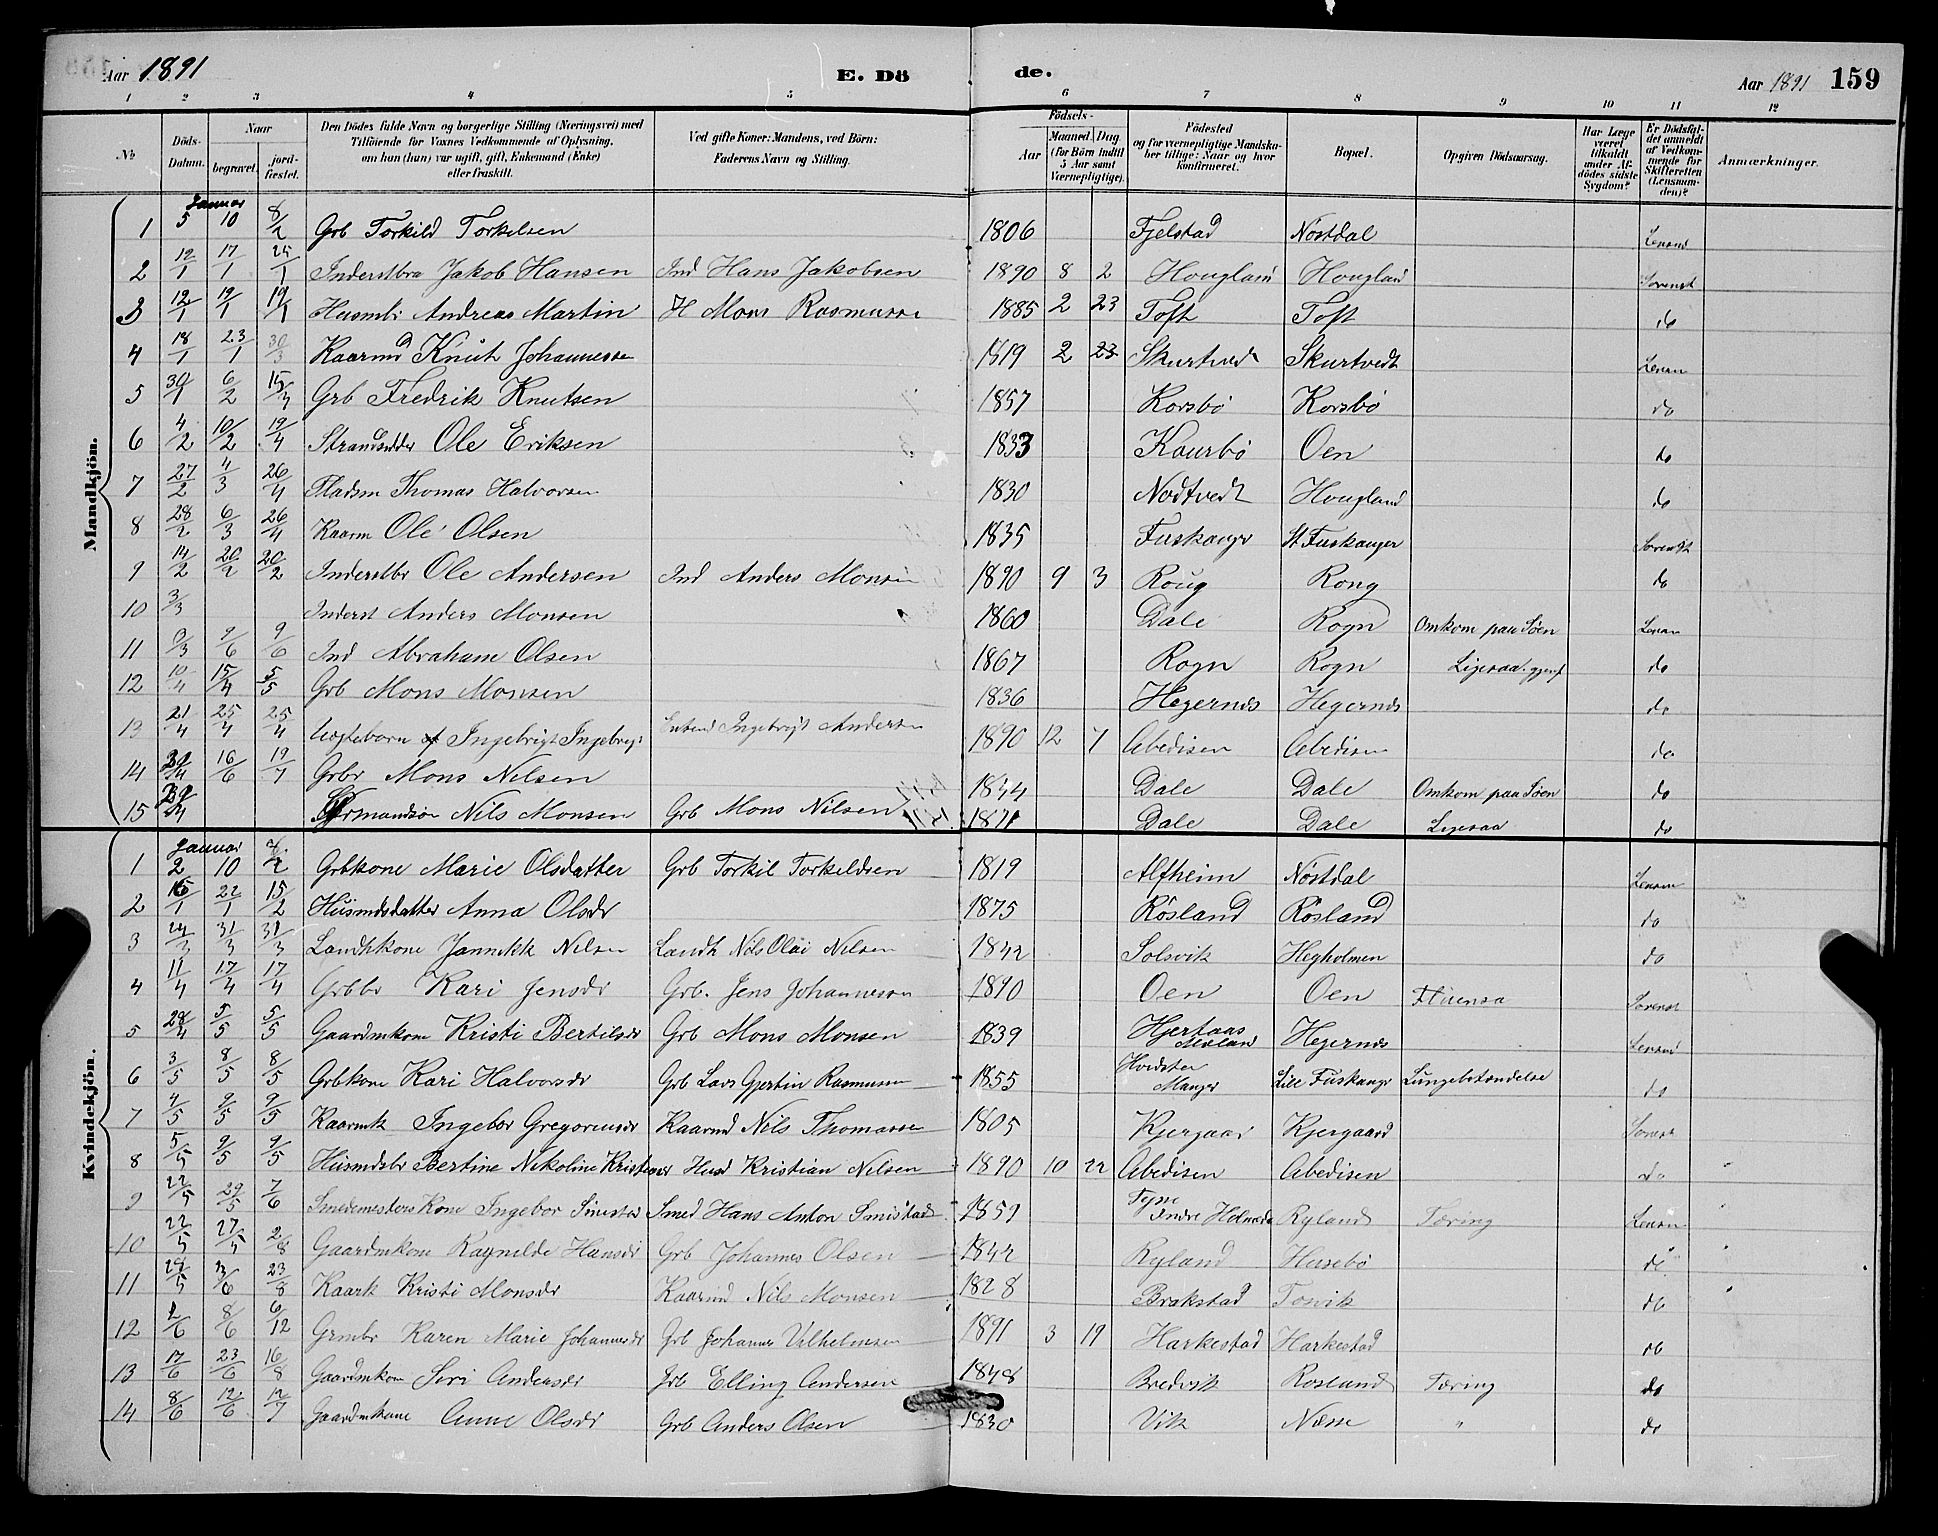 Aar 1891 E. Dö de. Aar 1891 159
1 2 3 4 5 6 7 8 9 10 11 12
No Döds-Datum. Naar begravet. jord-fæstet. Den Dödes fulde Navn og borgerlige Stilling (Næringsvei) med Tilföiende for Voxnes Vedkommende af Oplysning, om han (hun) var ugift, gift, Enkemand (Enke) eller fraskilt. Ved gifte Koner: Mandens, ved Börn: Faderens Navn og Stilling. Födsels- Aar Maaned Dag (for Börn indtil 5 Aar samt Værnepligtige). Födested og for værnepligtige Mandskaber tillige: Naar og hvor konfirmeret. Bopæl. Opgiven Dödsaarsag. Har Læge været tilkaldt under Afdödes sidste Sygdom? Er Dödsfaldet anmeldt af Vedkommende for Skifteretten (Lensmanden)? Anmærkninger.
Mandkjön.
Januar
1 5 10 8/2 Grb Torkild Torkelsen 1806 Fjelstad Nöstdal Lensmd
2 12/1 17/1 25/1 Inderstbrn Jakob Hansen Ind Hans Jakobsen 1890 8 2 Hougland Hougland Sorenst
3 12/1 19/1 19/1 Husmbr Andreas Martin H Mons Rasmussen 1885 2 23 Toft Toft do
4 18/1 23/1 30/3 Kaarmd Knut Johannessen 1819 2 23 Skurtvedt Skurtvedt Lensm
5 30/1 6/2 15/4 Grb Fredrik Knutsen 1857 Korsbö Korsbö do
6 4/2 10/2 19/4 Strandsidder Ole Eriksen 1833 Kaurbö Oen do
7 27/2 4/3 26/4 Pladsm Thomas Halvorsen 1830 Nodtvedt Hougland do
8 28/2 6/3 26/4 Kaarm Ole Olsen 1835 Fuskanger St Fuskanger Sorenst
9 14/2 20/2 20/2 Inderstbr Ole Andersen Ind Anders Monsen 1890 9 3 Roug Rong do
10 3/3 Inderst Anders Monsen 1860 Dale Rogn Omkom paa Söen Lensm
11 3/3 9/6 9/6 Ind Abraham Olsen 1867 Rogn Rogn Ligesaa do
12 10/4 15/4 5/5 Grb Mons Monsen 1836 Hegernes Hegernes do
13 21/4 25/4 25/4 Uægteborn Ingebrigt Ingebrigt Ingebrigt Andersen 1890 12 7 Abedisen Abedisen do
14 30/4 16/6 19/7 Grbr Mons Nilsen 1844 Dale Dale Omkom paa Söen do
15 30/4 Grmandsön Nils Monsen Grb Mons Nilsen 1871 Dale Dale Ligesaa do
Kvindekjön.
Januar
1 2 10 8/2 Grbkone Marie Olsdatter Grb Torkil Torkeldsen 1819 Alfheim Nöstdal Lensm
2 16/1 22/1 15/2 Husmdsdatter Anna Olsdr 1875 Rösland Rösland do
3 24/3 31/3 31/3 Landhkone Jannikk Nilsen Landh Nils Olai Nilsen 1842 Solsvik Hegholmen do
4 11/4 17/4 17/4 Grbbr Kari Jensdr Grb. Jens Johannessen 1890 Oen Oen Sorenst
5 28/4 5/5 5/5 Gaardmkone Kristi Bertilsdr Grb Mons Monsen 1839 Hjertaas Hegernes Lensmd
6 3/5 8/5 8/5 Grbkone Kari Halvorsdr Grb Lars Gjertin Rasmussen 1855 Manger Lille Fuskanger Lungebetændelse do
7 4/5 9/5 9/5 Kaarmk Ingebor Gregoriusdr Kaarmd Nils Thomassen 1805 Kjergaard Kjergaard Sorenst
8 5/5 9/5 9/5 Husmdsbr Bertine Nikoline Kristiansdr Husd Kristian Nilsen 1890 10 22 Abedisen Abedisen do
9 22/5 29/5 7/6 Smedemesters Kone Ingebor Smistad Smed Hans Anton Smistad 1859 Indre Holmedal Ryland Tæring Lensm
10 22/5 27/5 2/8 Gaardmkone Ragnilde Hansdr Grb Johannes Olsen 1842 Ryland Husebö do
11 28/5 3/6 23/8 Kaark Kristi Monsdr Kaarmd Nils Monsen 1828 Brakstad Tosvik do
12 2/6 8/6 6/12 Grmbr Karen Marie Johannesdr Grb Johannes Vilhelmsen 1891 3 19 Harkestad Harkestad do
13 17/6 23/6 16/8 Gaardmkone Siri Andersdr Grb Elling Andersen 1848 Bredvik Rosland Tæring do
14 8/6 12/6 12/7 Gaardmkone Anne Olsdr Grb Anders Olsen 1830 Vik Næsse " do